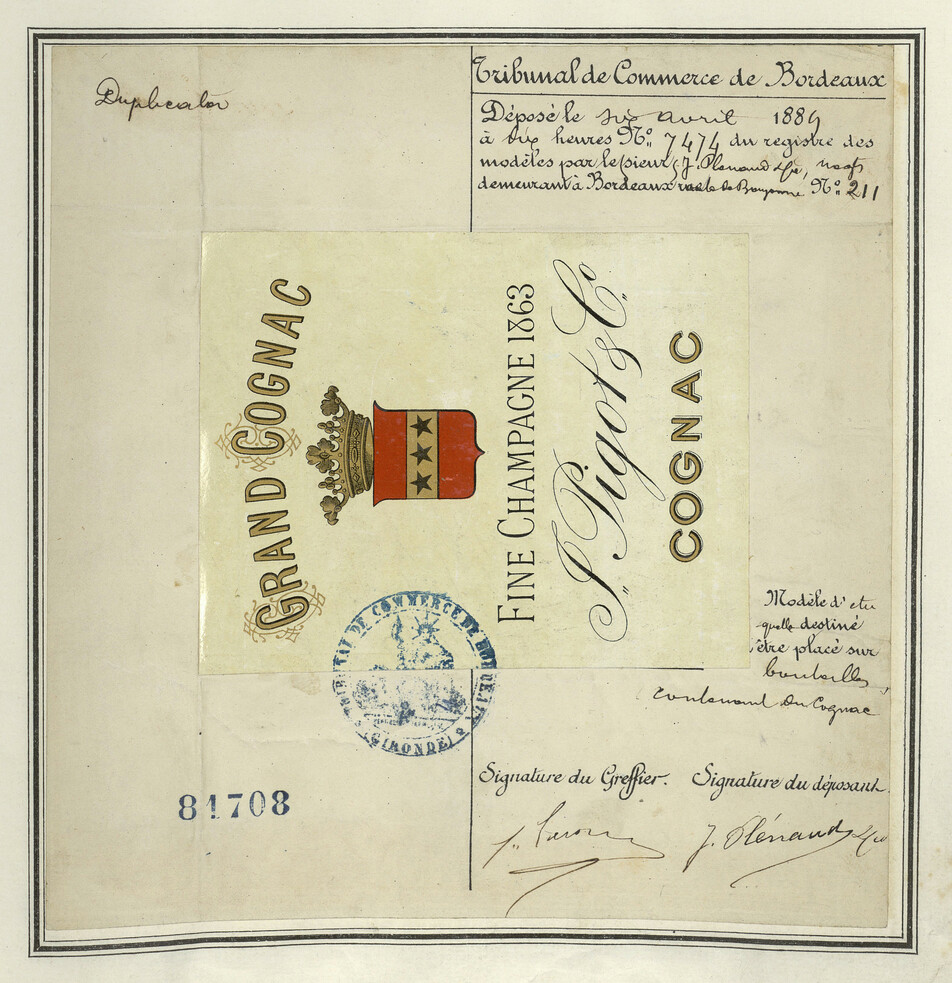 Duplicata
Tribunal de Commerce de Bordeaux
Déposé le six avril 1889
à dix heures No. 7474 du registre des
modèles par le sieur J. Plénaud & Cie,
demeurant à Bordeaux No. 211
GRAND COGNAC
FINE CHAMPAGNE 1863
J. Pigot & Co.
COGNAC
TRIBUNAL DE COMMERCE DE BORDEAUX
(GIRONDE)
Modèle d'éti
quette destiné
être placé sur
bouteilles
contenant du Cognac
Signature du Greffier. Signature du déposant.
J. Plénaud & Cie
81708